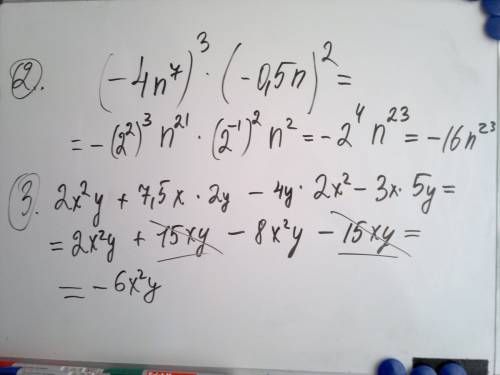 2. (-4n⁷)³ · (-0,5n)² =
= -(2²)³ n²¹ · (2⁻¹)² n² = -2⁴ n²³ = -16n²³
3. 2x²y + 7,5x · 2y - 4y · 2x² - 3x · 5y =
= 2x²y + 15xy - 8x²y - 15xy =
= -6x²y